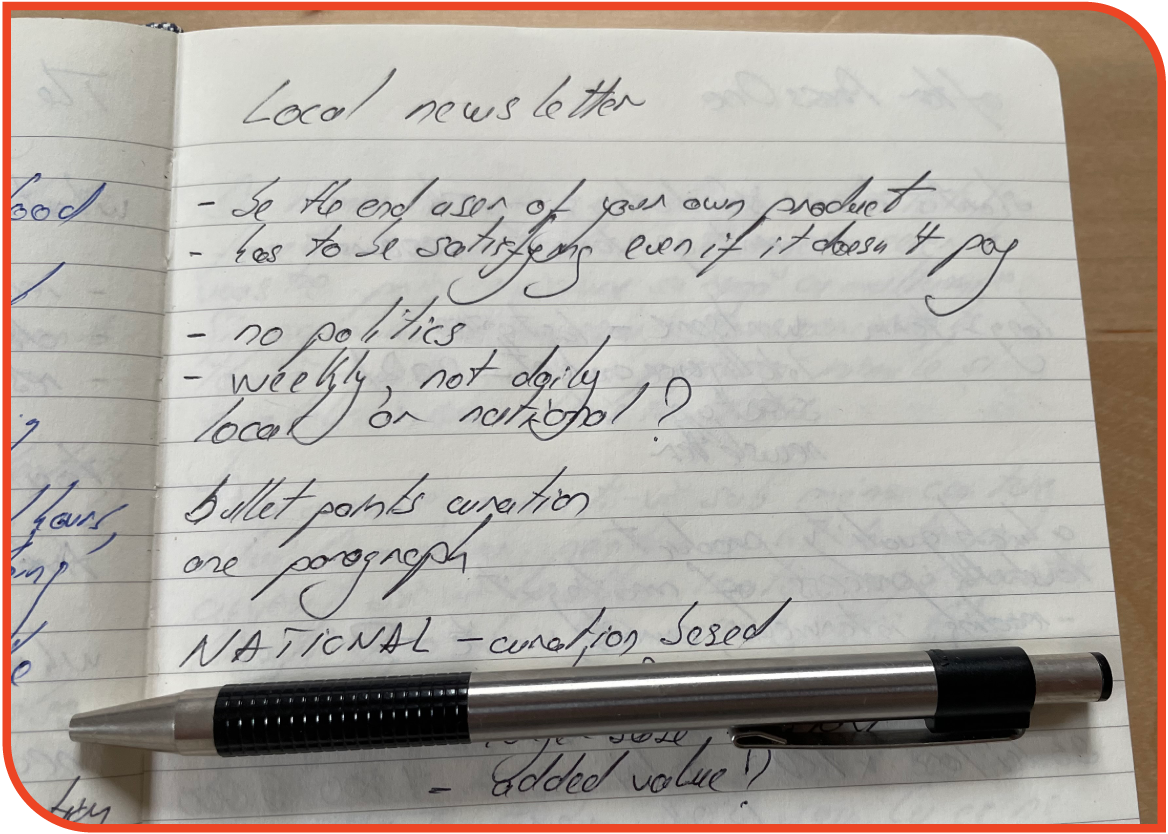 Local newsletter
food
- be the end user of your own product
- has to be satisfying even if it doesn't pay
- no politics
- weekly, not daily
local or national?
hours,
bullet points curation
one paragraph
NATIONAL - curation based
- added value?